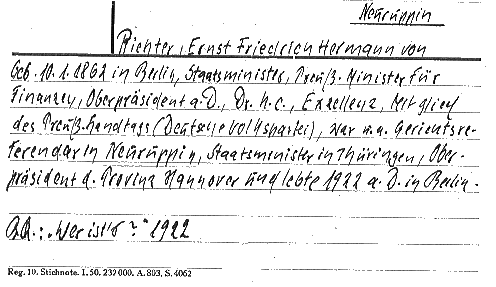 Neuruppin
Richter, Ernst Friedrich Hermann von
Geb. 10.1.1862 in Berlin, Staatsminister, Preuß. Minister für
Finanzen, Oberpräsident a.D., Dr. h.c., Exzellenz, Mitglied
des Preuß. Landtags (Deutsche Volkspartei), war u.a. Gerichtsre-
ferendar in Neuruppin, Staatsminister in Thüringen, Ober-
präsident d. Provinz Hannover und lebte 1922 a.D. in Berlin.
"Wer ist's?" 1922
Reg. 10. Stichnote. 1. 50. 232 000. A. 803, S. 4062